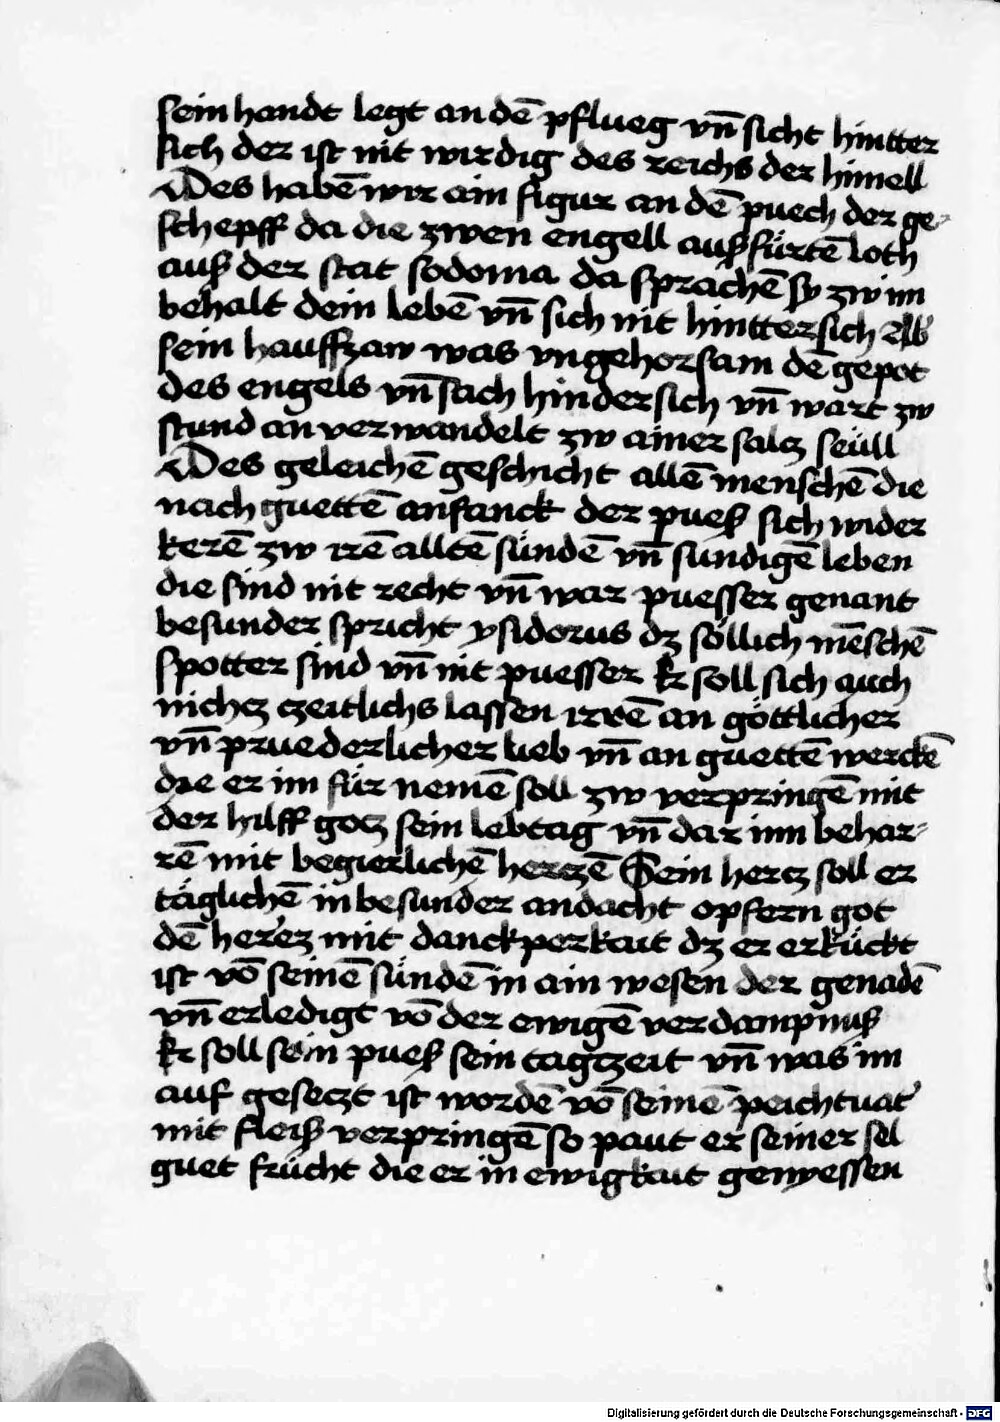 sein handt legt an dē pflueg vn̄ sicht hintter
sich der ist nit wirdig des reichs der himell
Des habē wir ain figur an dē puech der ge-
schepff da die zwen engell ausß fürtē loth
auß der stat sodoma da sprachē sy zw im
behalt dein lebē vn̄ sich nit hinttersich
sein hauffraw was vngehorsam dē gepot
des engels vn̄ sach hindersich vn̄ wart zw
stund an verwandelt zw ainer salcz seüll
Des geleichē geschicht allē menschē die
nach guettē anfanck der pueß sich wider
kerē zw irē alltē sündē vn̄ sundigē leben
die sind nit recht vn̄ war puesser genant
besunder spricht ysidorus dz söllich mēschē
spotter sind vn̄ nit puesser Er soll sich auch
nichcz czeitlichs lassen irrē an göttlicher
vn̄ pruederlicher lieb vn̄ an guettē werckē
die er im für nemē soll zw verpringē mit
der hilff gocz sein lebtag vn̄ dar inn behar-
rē mit begierlichē herczē Sein hercz soll er
täglichē in besunder andacht opfern got
dē herrē mit danckperkait dz er erkückt
ist vō seinē sündē in ain wesen der genadē
vn̄ erledigt vō der ewigē verdampnuß
Er soll sein pueß sein tagczeit vn̄ was im
auf geseczt ist wordē vō seinē peichtuat'
mit fleiß verpringē so paut er seiner sel
guet frücht die er in ewigkait genyessen
Digitalisierung gefördert durch die Deutsche Forschungsgemeinschaft - DFG